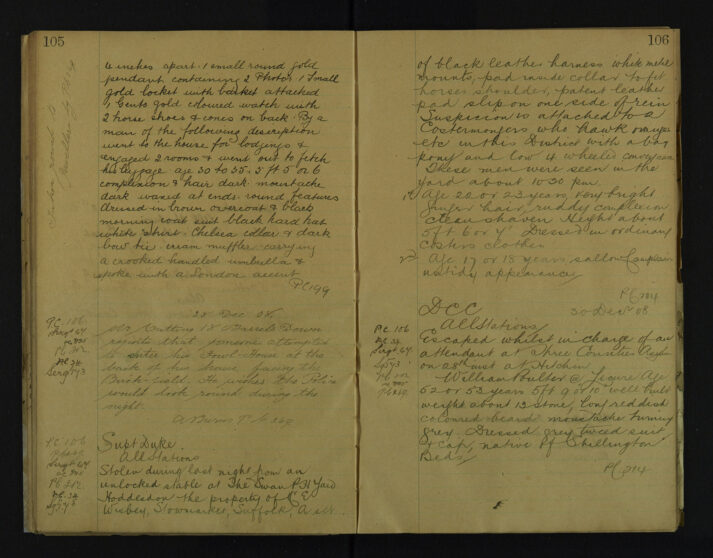 105
6 inches apart. 1 small round gold
pendant containing 2 Photos. 1 Small
gold locket with basket attached
1 Gents gold coloured watch with
2 horse shoes & cones on back. By a
man of the following description
went to the house for lodgings &
engaged 2 rooms & went out to fetch
his luggage age 30 to 35. 5 ft 5 or 6
complexion & hair dark moustache
dark waxed at ends. round features
dressed in brown overcoat & black
morning coat suit black hard hat
white shirt. Chelsea collar & dark
bow tie. cream muffler. carrying
a crooked handled umbrella &
spoke with a London accent
PC 199
28 Dec 08
PC 106
Sergt 64
PC 34
Sergt 43
Mr Cutting 18 Down
reports that someone attempted
to enter his Fowl-House at the
back of his house facing the
Brick-field. He wishes the Police
would look round during the
night.
PC 106
Sergt 64
PC 34
Supt Duke.
All Stations
Stolen during last night from an
unlocked stable at The Swan P.H. Yard
Hoddesdon the property of Mr E
Wisbey, Stowmarket, Suffolk, A set
106
of black leather harness white metal
mounts, pad inside collar to fit
horses shoulder, patent leather
pad slip on one side of rein
Suspicion is attached to 2
Costermongers who hawk oranges
etc in this District with a bay
pony and low 4 wheeled conveyance
These men were seen in the
yard about 10 30 pm.
1st Age 22 or 23 years, very bright
ginger hair, ruddy complexion
clean shaven Height about
5 ft 6 or 7" Dressed in ordinary
costers clothes
2nd Age 17 or 18 years, sallow Complexion
untidy appearance
30 Decr 08
PC 106
PC 34
Sergt 64
DCC
All Stations
Escaped whilst in charge of an
attendant at Three Counties Asylum
on 28th inst at Hitchin
William Poulter @ Age
52 or 53 years 5 ft 9 or 10" well built
weight about 12 stone, long reddish
coloured beard moustache turning
grey Dressed grey tweed suit
& Cap, native of Shillington
Beds.